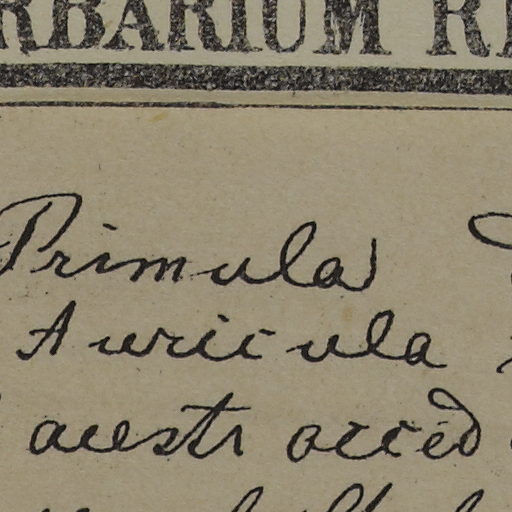 RBARIUM R
Primula
Auricula
aust occid